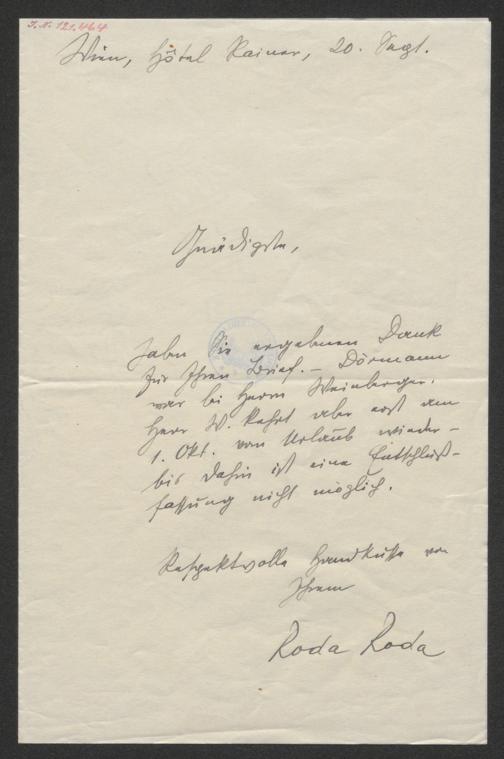 I.N. 121.464
Wien, Hôtel Rainer, 20. Sept.
Gnädigste,
haben Sie ergebenen Dank
für Ihren Brief. – Dörmann
war bei Herrn Weinberger.
Herr W. kehrt aber erst am
1. Okt. vom Urlaub wieder –
bis dahin ist eine Entschluß-
fassung nicht möglich.
Respektvolle Handküsse von
Ihrem
Roda Roda